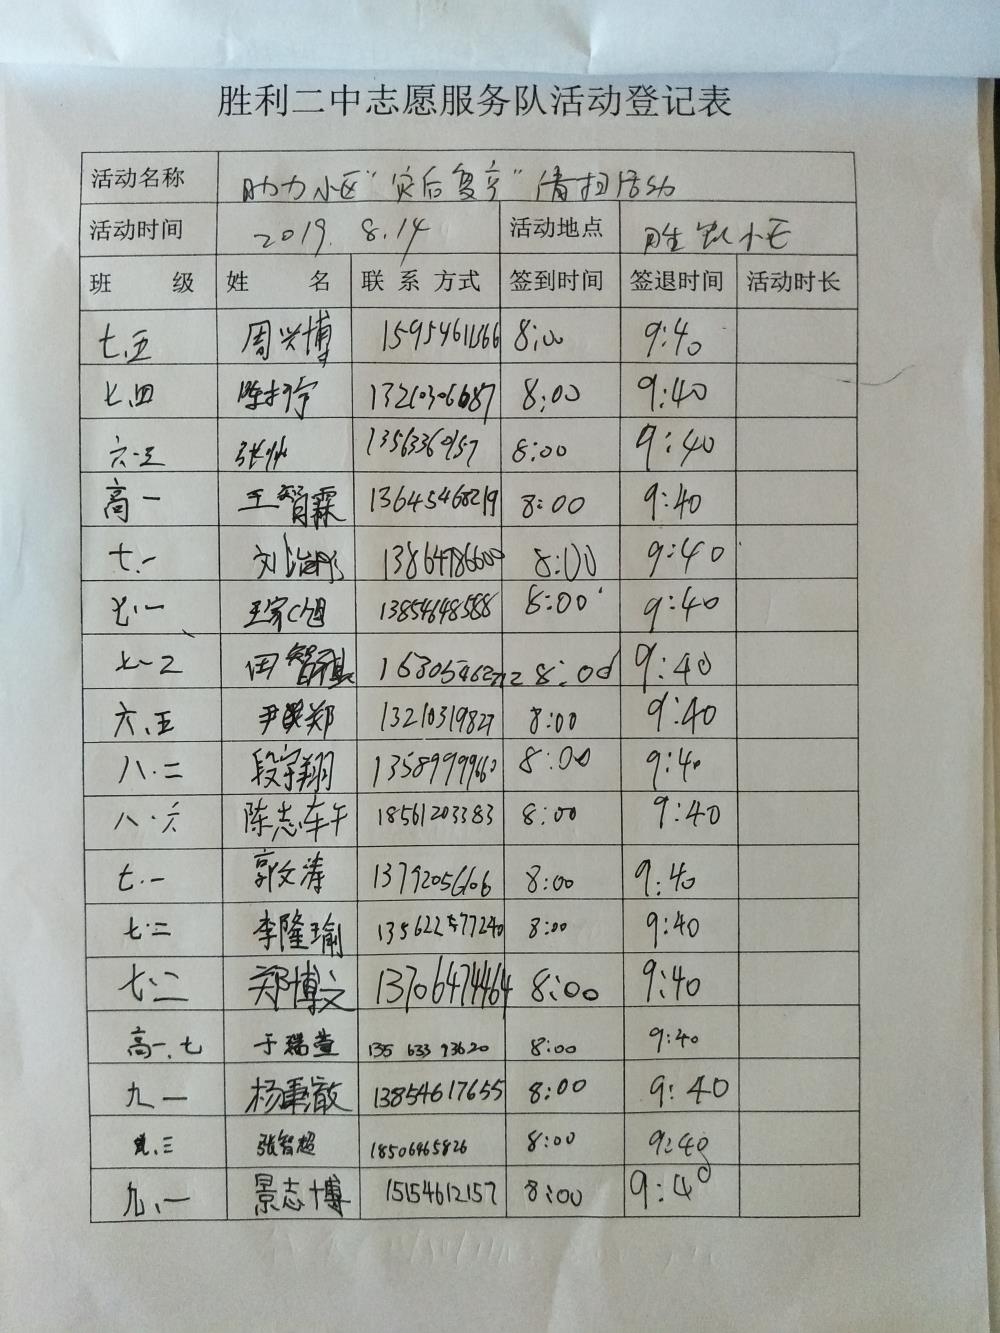 胜利二中志愿服务队活动登记表
活动名称 助力小区"灾后复产"清扫活动
活动时间 2019. 8.14 活动地点 胜凯小区
班 级 姓 名 联 系 方式 签到时间 签退时间 活动时长
七.五 周兴博 15954611366 8:00 9:40
七.四 陈 8:00 9:40
六.三 张 13563360157 8:00 9:40
高一 王智霖 13645468219 8:00 9:40
七.一 刘治彤 13864786600 8:00 9:40
七.一 王家旭 13854648588 8:00 9:40
七一2 田智 8:00 9:40
六.五 尹 郑 13210319827 8:00 9:40
八.二 段宇翔 13589999660 8:00 9:40
八.六 陈志 18561203383 8:00 9:40
七.一 郭文涛 13792056606 8:00 9:40
七.二 李隆瑜 13562257240 8:00 9:40
七.二 郑博文 13706474464 8:00 9:40
高一.七 于瑞萱 135 633 93620 8:00 9:40
九一 杨秉澈 13854617655 8:00 9:40
九.三 张智超 18506465826 8:00 9:40
九.一 景志博 15154612157 8:00 9:40